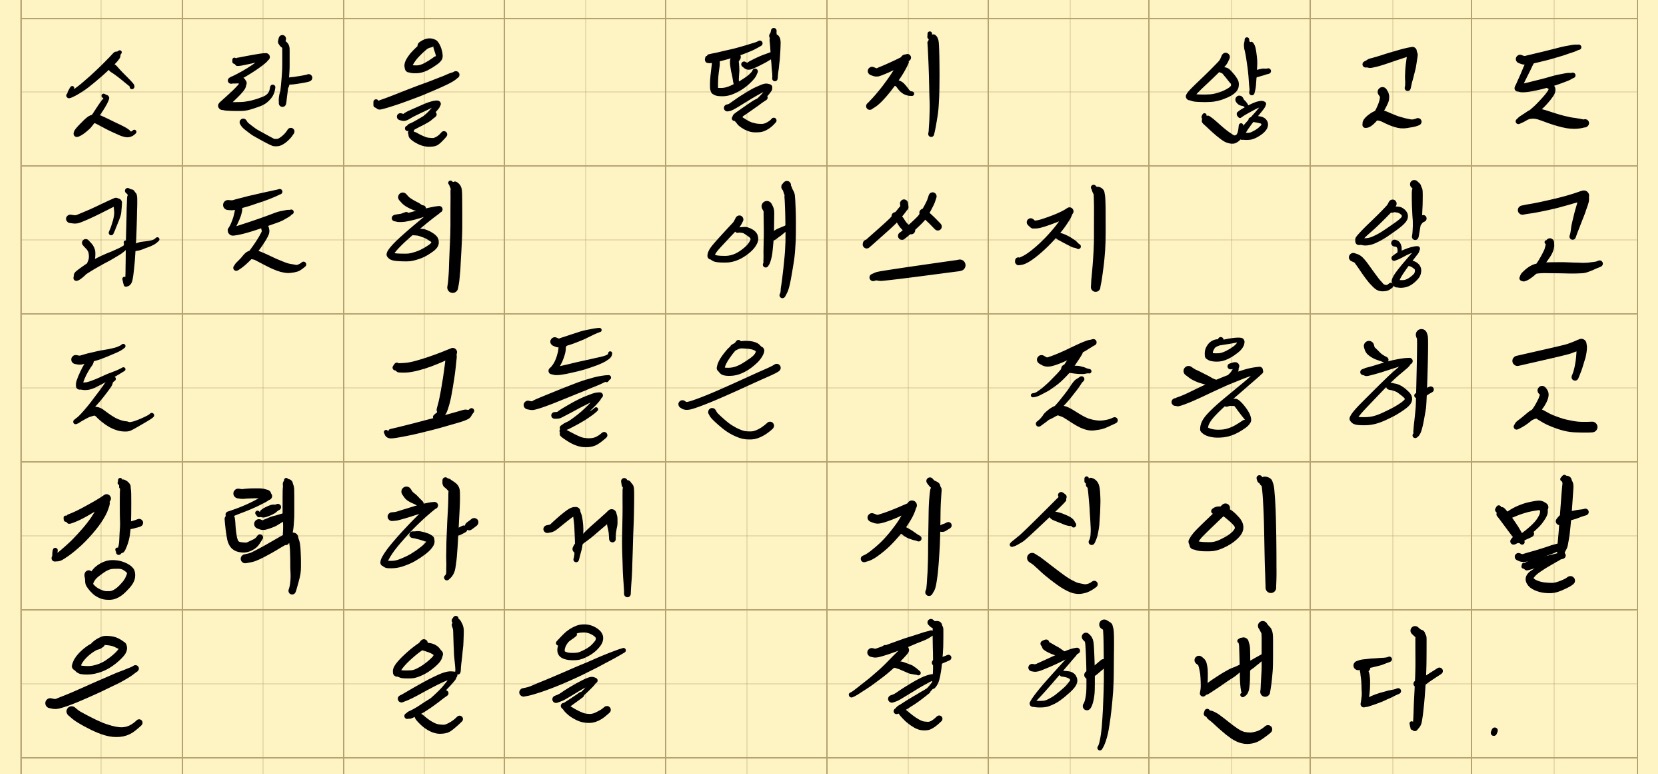 소란을 떨지 않고도
과도히 애쓰지 않고
도 그들은 조용하고
강력하게 자신이 말
은 일을 잘해낸다.